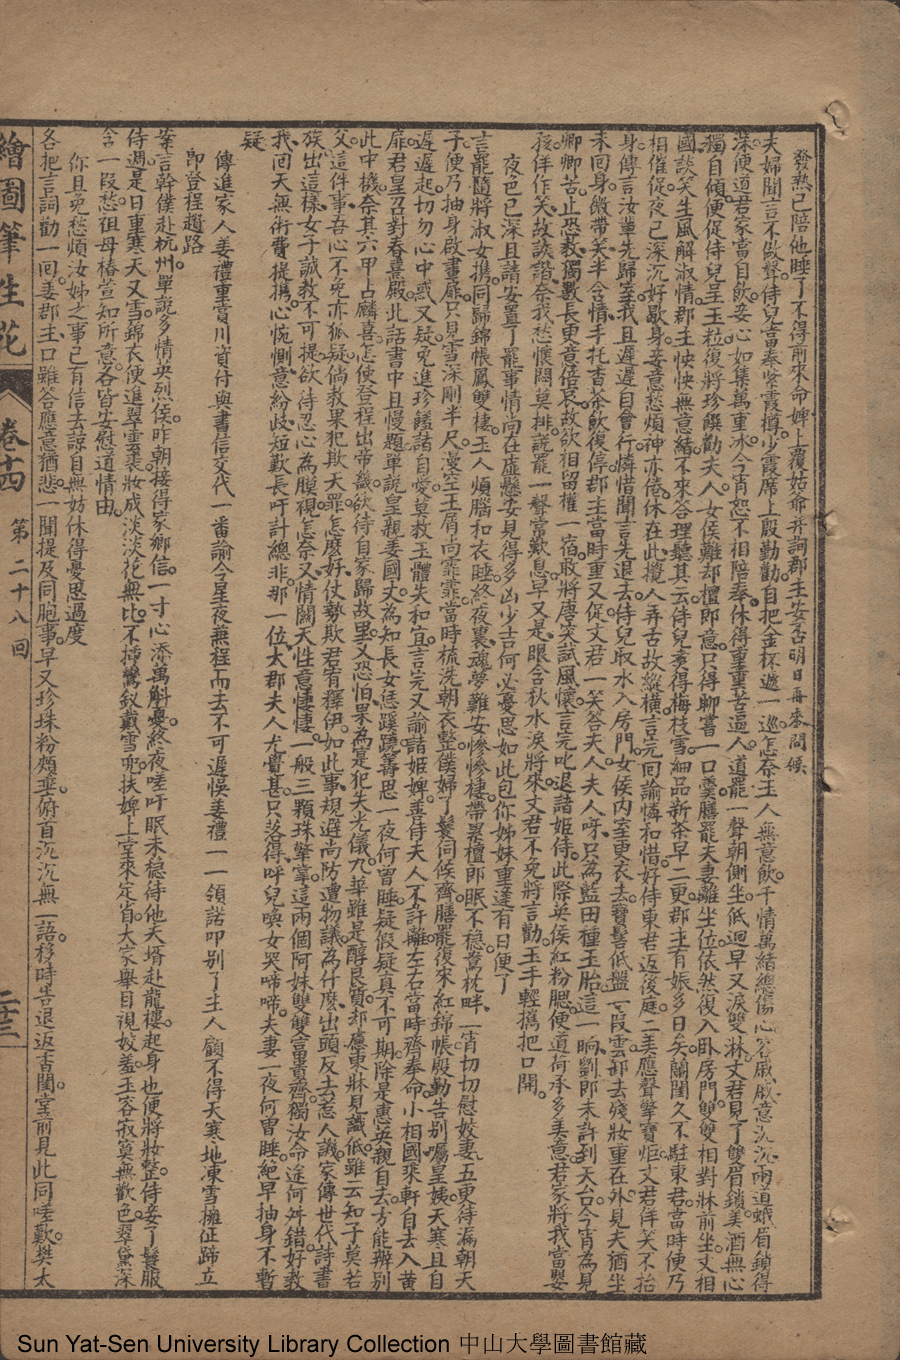 發熱已陪他睡了不得前來命婢上覆姑爺并詢郡主安否明日再來問候
夫婦聞言不做聲侍兒言畢奉紫霞樽少霞席上殷勤勸自把金杯遞一巡怎奈玉人無意飲千情萬緒總傷心容戚戚意沉沉兩道蛾眉鎖得
深便道君家當自飲妾心如集萬重冰今宵恕不相陪奉休得重重苦逼人道罷一聲朝側坐低迴早又淚雙淋文君見了雙眉鎖美酒無心
獨自傾便促侍兒呈玉粒復將珍饌勸夫人女侯難却檀郎意只得聊嘗一口羹膳罷夫妻離坐位依然復入卧房門雙雙相對牀前坐丈相
國談笑生風解淑情郡主怏怏無意緒不來答理聽其云侍兒煑得梅枝雪細品新茶早二更郡主有娠多日矣蘭閨久不駐東君當時便乃
相催促夜已深沉好歇身妾意愁煩神亦倦休在此攪人弄舌故縱橫言完回諭憐和惜好侍東君返後庭二美應聲擎寶炬文君佯笑不抬
身傳言汝輩先歸室我且遲遲自會行憐惜聞言先退去侍兒取水入房門女侯內室更衣去寶髻低盤一段雲卸去殘妝重在外見夫猶坐
未回身微帶笑半含情手托香茶飲復停郡主當時重又促文君一笑答夫人夫人呀只為藍田種玉胎這一晌劉郎未許到天台今宵為見
卿卿苦止恐教獨數長更意倍哀故欲相留權一宿敢將唐突試風懷言完叱退諸姬侍此際英侯紅粉腮便道荷承多美意君家將我當嬰
孩佯佯作笑故詼諧奈我愁懷悶莫排謊罷一聲當歎息早又是眼含秋水淚將來文君不免將言勸玉手輕攜把口開
夜色已深且請安置了罷事情尚在虛懸安見得多凶少吉何必憂思如此包你姊妹重逢有日便了
言罷隨將淑女攜同歸錦帳鳳雙棲玉人煩腦和衣睡終夜裏魂夢難安慘慘棲帶累檀郎眠不穩鴛枕畔一宵切切慰姣妻五更待漏朝天
子便乃抽身啟畫扉只見雪深剛半尺漫空玉屑尚霏霏當時梳洗朝衣整僕婦丫鬟伺候齊膳罷復來紅錦帳殷勤告别囑皇姨天寒且自
遲遲起切勿心中惑又疑免進珍饈諸自愛莫教玉體失和宜言完又諭諸姬婢善侍夫人不許離左右當時齊奉命小相國乘軒自去入黃
扉君皇召對春熹殿此話書中且慢題單説呈親姜國丈為知長女恁蹊蹺籌思一夜何曾睡疑假疑真不可期除是惠英親自去方能辦别
此中機奈其六甲占麟喜怎使登程出帝畿欲待自家歸故里又恐怕果為是犯失光儀九華雖是醇良質却慮東牀見識低雖云知子莫若
父這件事吾心不免亦狐疑倘教果犯欺天罪怎麼好仗勢欺君宥釋伊如此事規避尚防遭物議為什麼出頭反去惹人譏家傳世代詩書
族出這樣女子誠教不可提欲待忍心為膜視怎奈又情關天性意悽悽一般三顆珠擎掌這兩個阿妹雙雙富貴齊獨汝命途何舛錯好教
我回天無術費提攜心惋惻意紛歧短歎長吁計總非那一位太郡夫人尤覺甚只落得呼兒喚女哭啼啼夫妻一夜何曾睡絕早抽身不暫
疑
傳進家人姜禮重賞川資付與書信交代一番諭令星夜兼程而去不可遲悞姜禮一一領諾叩别了主人顧不得天寒地凍雪擁征蹄立
即登程趲路
筆言幹僕赴杭州單説多情英烈侯昨朝接得家鄉信一寸心添萬斛憂終夜哇吁眠未穩侍他夫壻赴龍樓起身也便將妝整侍妾丫鬟服
侍週是日重寒天又雪錦衣便進翠雲裘妝成淡淡花無比不揷鸞釵戴雪兜扶婢上堂來定省大家舉目視姣羞玉容寂寞無歡色翠黛深
含一段愁祖母椿萱知所意各皆安慰道情由
你且免愁煩汝姊之事已有信去諒自無妨休得憂思過度
各把言詞勸一回姜郡主口雖答應意猶悲一聞提及同胞事早又珍珠粉頰垂俯首沉沉無一語移時告退返香閨堂前見此同哇歎樊太
繪圖筆生花
卷十四
第二十八回
二十三
Sun Yat-Sen University Library Collection 中山大學圖書館藏